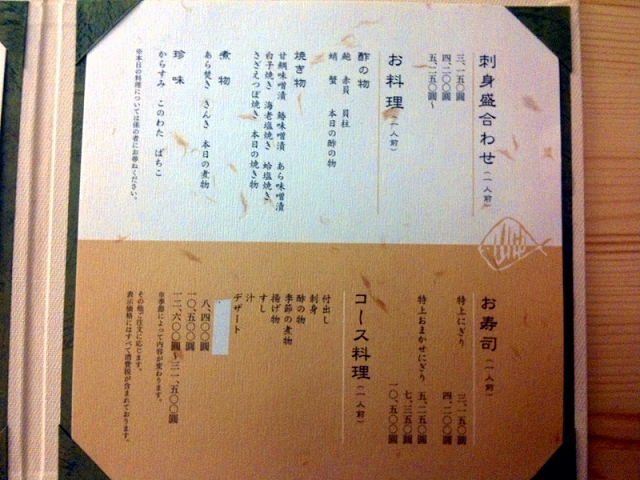 刺身盛合わせ（一人前）
三、一五〇圓
四、二〇〇圓
五、二五〇圓〜
お料理（一人前）
酢の物
鮑 赤貝 貝柱
蛸 蟹 本日の酢の物
焼き物
甘鯛味噌漬 鰆味噌漬 あら味噌漬
白子焼き 海老塩焼き 蛤塩焼き
さざえつぼ焼き 本日の焼き物
煮物
あら焚き きんき 本日の煮物
珍味
からすみ このわた ばちこ
※本日の料理については係の者にお尋ねください。
お寿司（一人前）
特上にぎり 三、一五〇圓
四、二〇〇圓
特上おまかせにぎり 五、二五〇圓
七、三五〇圓
一〇、五〇〇圓
コース料理（一人前）
付出し
刺身
酢の物
季節の煮物
揚げ物
すし
汁
デザート
八、四〇〇圓
一〇、五〇〇圓
一二、六〇〇圓〜三一、五〇〇圓
※季節によって内容が変わります。
その他ご注文に応じます。
表示価格にはすべて消費税が含まれております。